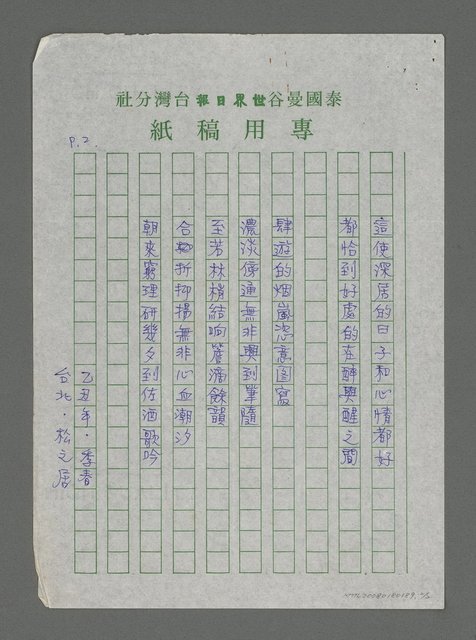 泰國曼谷世界日報台灣分社
專用稿紙
P.2.
這使深居的日子和心情都好
都恰到好處的在醉與醒之間
肆遊的烟嵐恣意圖寫
濃淡傍通無非興到筆隨
至若林梢結响簷滴餘韻
合折抑揚無非心血潮汐
朝來窮理研幾夕到佐酒歌吟
乙丑年·季春
台北·松之居